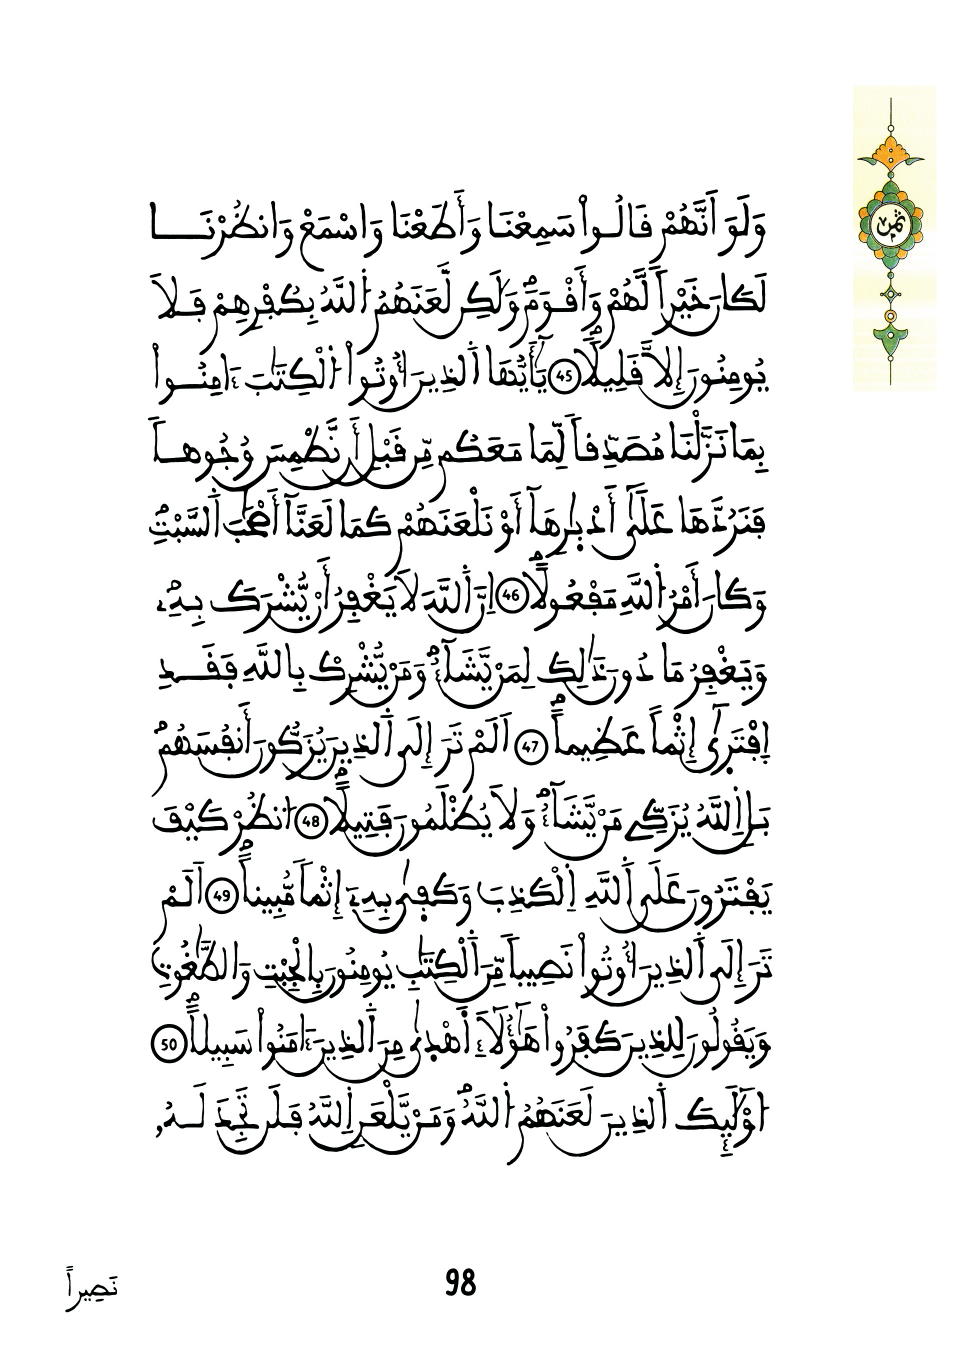 ثمن
وَلَوَ اَنَّهُمْ قَالُواْ سَمِعْنَا وَأَطَعْنَا وَاسْمَعْ وَانظُرْنَا
لَكَانَ خَيْراٗ لَّهُمْ وَأَقْوَمَۖ وَلَٰكِن لَّعَنَهُمُ اُ۬للَّهُ بِكُفْرِهِمْ فَلَا
يُومِنُونَ إِلَّا قَلِيلاٗۖ 45 يَٰٓأَيُّهَا اَ۬لذِينَ أُوتُواْ اُ۬لْكِتَٰبَ ءَامِنُواْ
بِمَا نَزَّلْنَا مُصَدِّقاٗ لِّمَا مَعَكُم مِّن قَبْلِ أَن نَّطْمِسَ وُجُوهاٗ
فَنَرُدَّهَا عَلَىٰٓ أَدْبٰ۪رِهَآ أَوْ نَلْعَنَهُمْ كَمَا لَعَنَّآ أَصْحَٰبَ اَ۬لسَّبْتِۖ
وَكَانَ أَمْرُ اُ۬للَّهِ مَفْعُولاًۖ 46 اِنَّ اَ۬للَّهَ لَا يَغْفِرُ أَنْ يُّشْرَكَ بِهِۦۖ
وَيَغْفِرُ مَا دُونَ ذَٰلِكَ لِمَنْ يَّشَآءُۖ وَمَنْ يُّشْرِكْ بِاللَّهِ فَقَدِ
اِ۪فْتَر۪يٰٓ إِثْماً عَظِيماًۖ 47 اَلَمْ تَرَ إِلَى اَ۬لذِينَ يُزَكُّونَ أَنفُسَهُمۖ
بَلِ اِ۬للَّهُ يُزَكِّے مَنْ يَّشَآءُۖ وَلَا يُظْلَمُونَ فَتِيلاًۖ 48 اُ۟نظُرْ كَيْفَ
يَفْتَرُونَ عَلَى اَ۬للَّهِ اِ۬لْكَذِبَ وَكَف۪يٰ بِهِۦٓ إِثْماٗ مُّبِيناًۖ 49 اَلَمْ
تَرَ إِلَى اَ۬لذِينَ أُوتُواْ نَصِيباٗ مِّنَ اَ۬لْكِتَٰبِ يُومِنُونَ بِالْجِبْتِ وَالطَّٰغُوتِ
وَيَقُولُونَ لِلذِينَ كَفَرُواْ هَٰٓؤُلَآءِ أَهْد۪يٰ مِنَ اَ۬لذِينَ ءَامَنُواْ سَبِيلاًۖ 50
ا۟وْلَٰٓئِكَ اَ۬لذِينَ لَعَنَهُمُ اُ۬للَّهُۖ وَمَنْ يَّلْعَنِ اِ۬للَّهُ فَلَن تَجِدَ لَهُۥ
نَصِيراًۖ
98